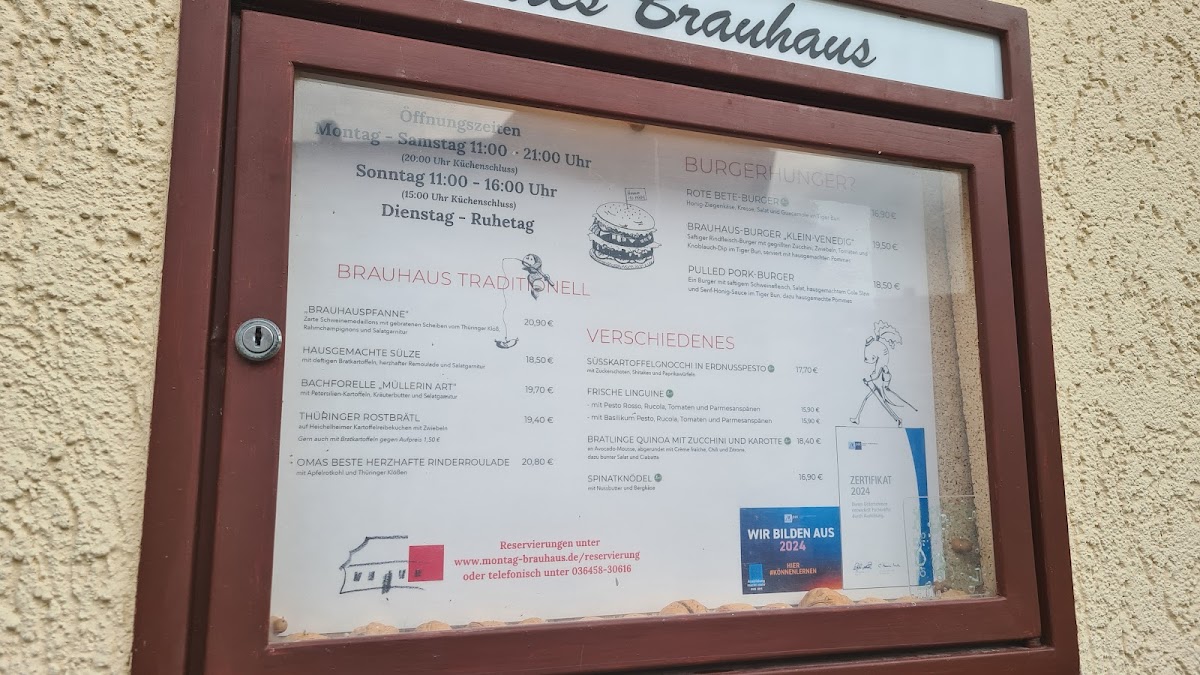 Brauhaus
Öffnungszeiten
Montag - Samstag 11:00 - 21:00 Uhr
(20:00 Uhr Küchenschluss)
Sonntag 11:00 - 16:00 Uhr
(15:00 Uhr Küchenschluss)
Dienstag - Ruhetag
BRAUHAUS TRADITIONELL
„BRAUHAUSPFANNE“ 20,90 €
Zarte Schweinemedaillons mit gebratenen Scheiben vom Thüringer Kloß,
Rahmchampignons und Salatgarnitur
HAUSGEMACHTE SÜLZE 18,50 €
mit deftigen Bratkartoffeln, herzhafter Remoulade und Salatgarnitur
BACHFORELLE „MÜLLERIN ART“ 19,70 €
mit Petersilien-Kartoffeln, Kräuterbutter und Salatgarnitur
THÜRINGER ROSTBRÄTL 19,40 €
auf Heichelheimer Kartoffelreibekuchen mit Zwiebeln
Gern auch mit Bratkartoffeln gegen Aufpreis 1,50 €
OMAS BESTE HERZHAFTE RINDERROULADE 20,80 €
mit Apfelrotkohl und Thüringer Klößen
Reservierungen unter
www.montag-brauhaus.de/reservierung
oder telefonisch unter 036458-30616
BURGERHUNGER?
ROTE BETE-BURGER 16,90 €
Honig-Ziegenkäse, Kresse, Salat und Guacamole im Tiger Bun
BRAUHAUS-BURGER „KLEIN-VENEDIG“ 19,50 €
Saftiger Rindfleisch-Burger mit gegrillten Zucchini, Zwiebeln, Tomaten und
Knoblauch-Dip im Tiger Bun, serviert mit hausgemachten Pommes
PULLED PORK-BURGER 18,50 €
Ein Burger mit saftigem Schweinefleisch, Salat, hausgemachtem Cole Slaw
und Senf-Honig-Sauce im Tiger Bun, dazu hausgemachte Pommes
VERSCHIEDENES
SÜSSKARTOFFELGNOCCHI IN ERDNUSSPESTO 17,70 €
mit Zuckerschoten, Shiitakes und Paprikawürfeln
FRISCHE LINGUINE
- mit Pesto Rosso, Rucola, Tomaten und Parmesanspänen 15,90 €
- mit Basilikum Pesto, Rucola, Tomaten und Parmesanspänen 15,90 €
BRATLINGE QUINOA MIT ZUCCHINI UND KAROTTE 18,40 €
an Avocado Mousse, abgerundet mit Crème fraîche, Chili und Zitrone,
dazu bunter Salat und Ciabatta
SPINATKNÖDEL 16,90 €
mit Nussbutter und Bergkäse
WIR BILDEN AUS
2024
HIER
#KÖNNENLERNEN
ZERTIFIKAT
2024